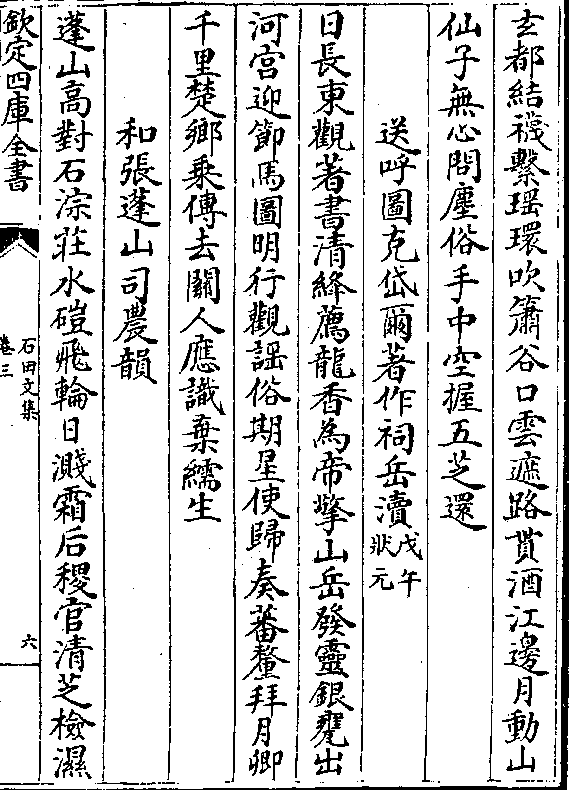 玄都結襪繫瑶環吹簫谷口雲遮路貰酒江邊月動山
仙子無心問塵俗手中空握五芝還
送呼圖克岱爾著作祠岳瀆戊午狀元
日長東觀著書清絳薦龍香為帝擎山岳發靈銀甕出
河宫迎節馬圖明行觀謡俗期星使歸奏蕃釐拜月卿
千里楚鄉乘傳去關人應識棄繻生
和張蓬山司農韻
蓬山高對石淙莊水磑飛輪日濺霜后稷官清芝檢濕
欽定四庫全書
石田文集
卷三
六